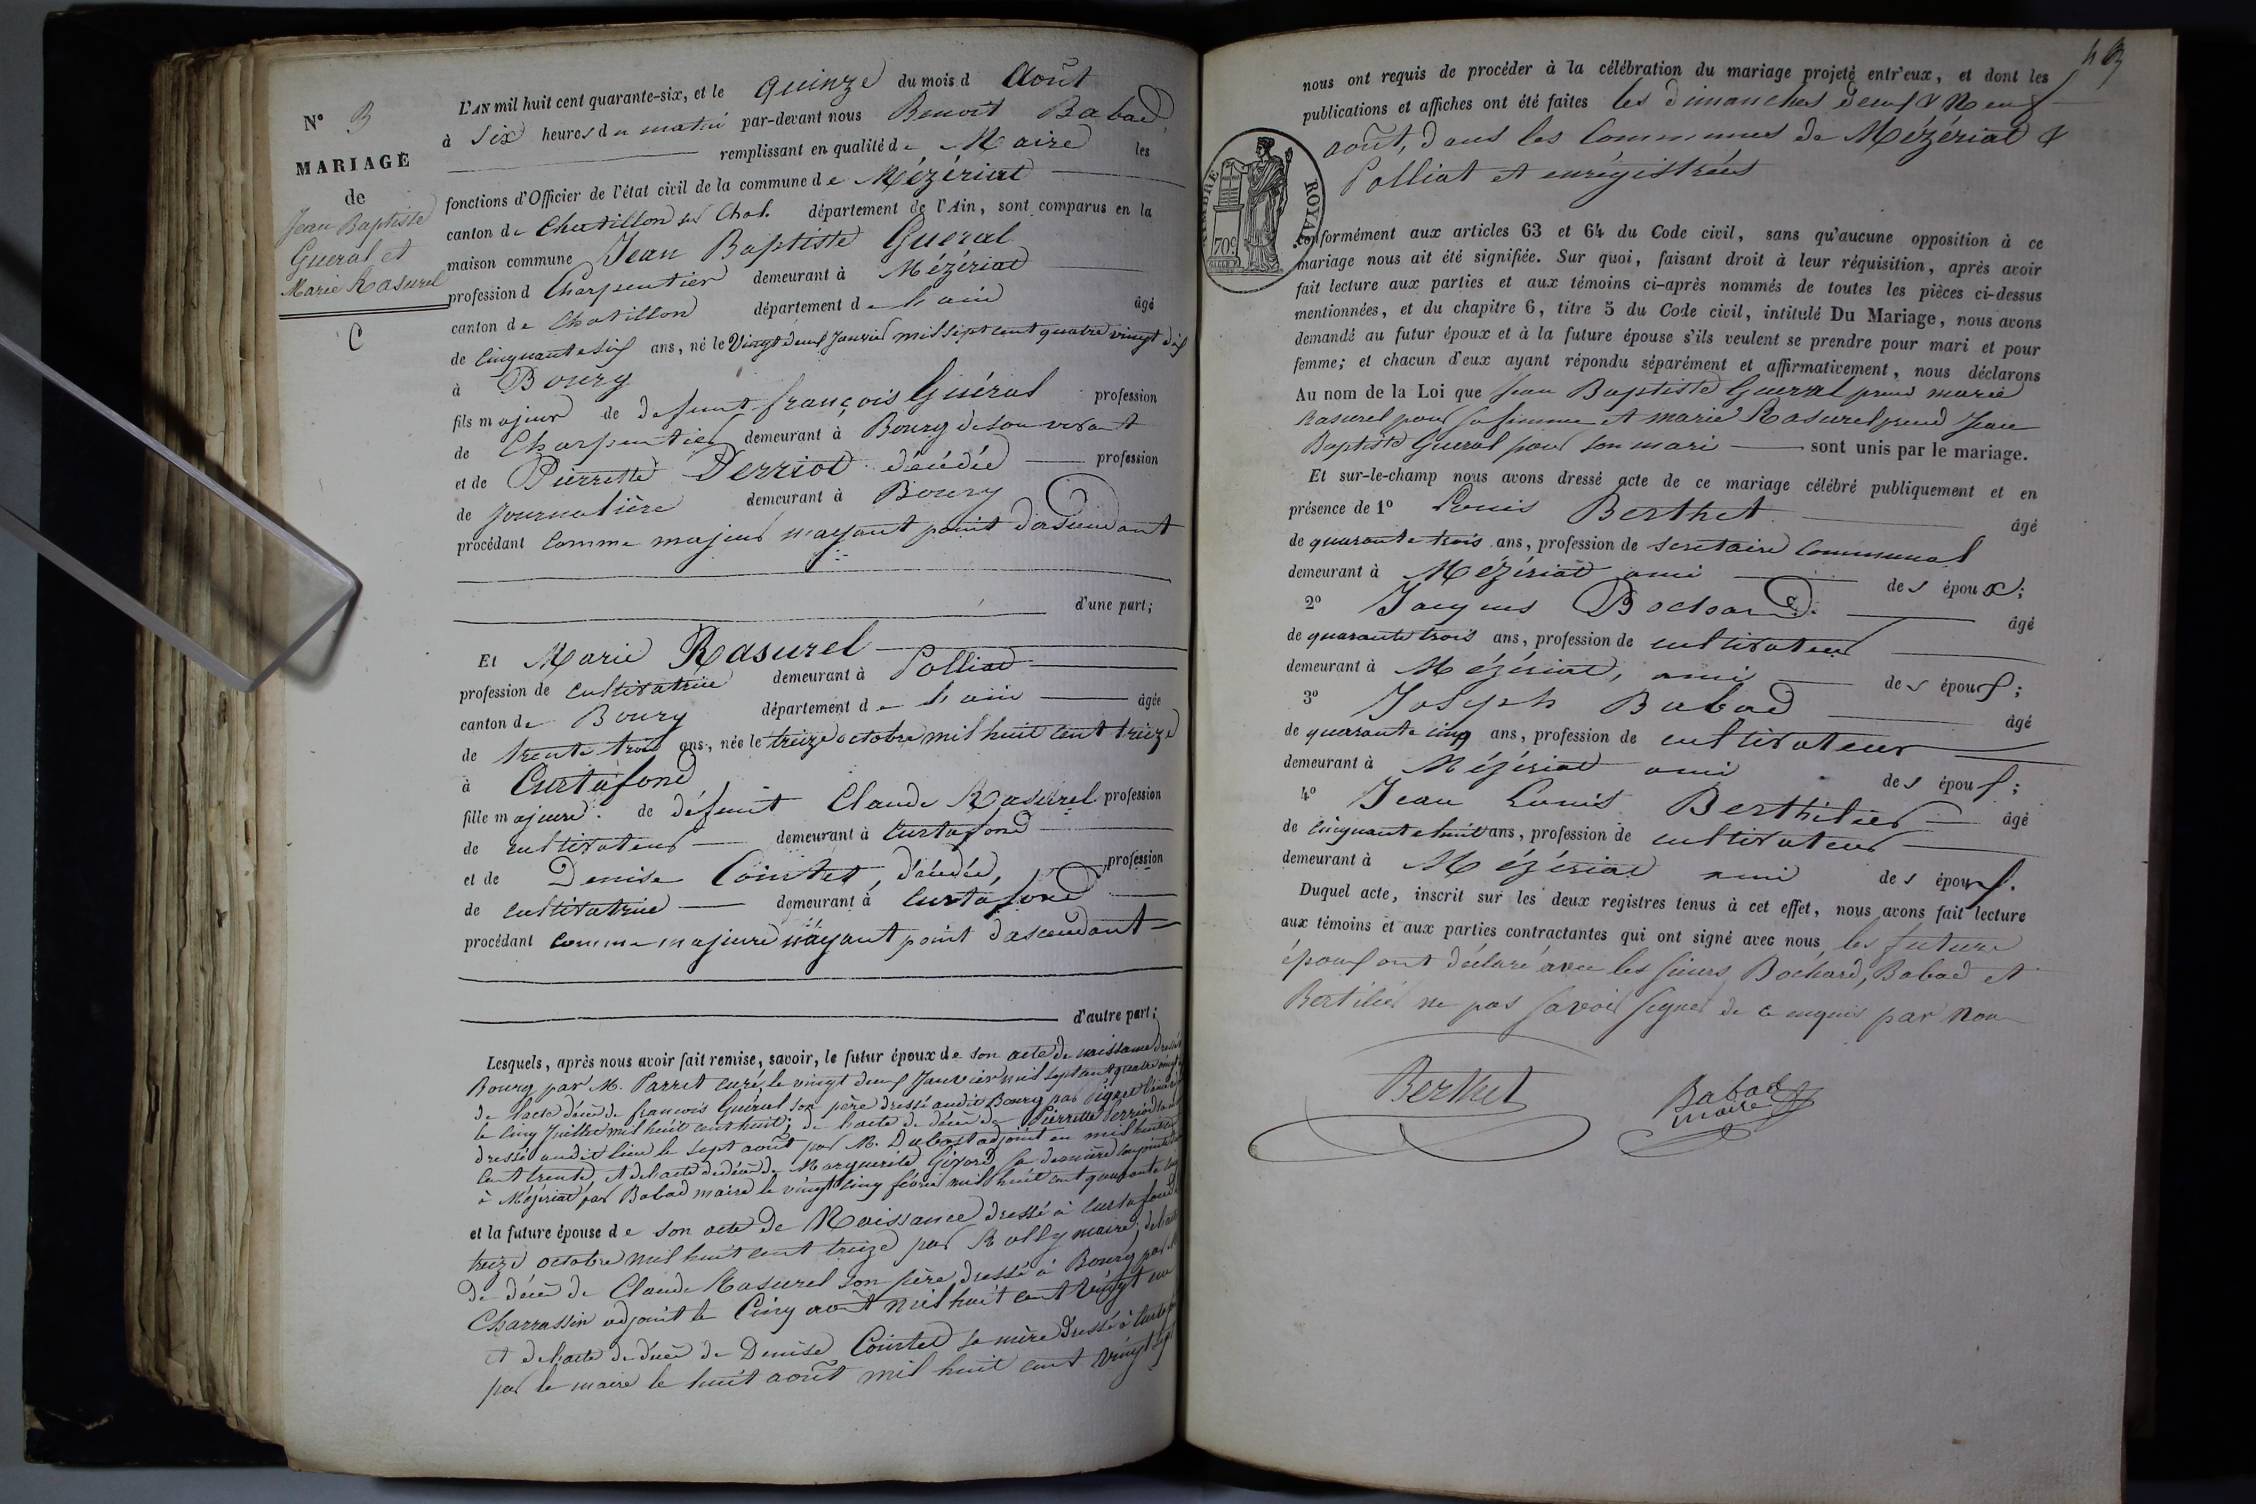 N° 3
MARIAGE
de
Jean Baptiste
Gueral et
Marie Rasurel
C
L'AN mil huit cent quarante-six, et le quinze du mois d Août
à Six heures du matin par-devant nous Benoit Babad,
remplissant en qualité de Maire les
fonctions d'Officier de l'état civil de la commune de Mézériat
canton de Chatillon sur Chal. département de l'Ain, sont comparus en la
maison commune Jean Baptiste Gueral
profession d Charpentier demeurant à Mézériat
canton de Chatillon département de l'ain âgé
de cinquante six ans, né le Vingt deux Janvier mil sept cent quatre vingt dix
à Bourg
fils majeur de defunt françois Guéral profession
de Charpentier demeurant à Bourg de son vivant
et de Pierrette Derriot décédée profession
de Journalière demeurant à Bourg
procédant comme majeur n'ayant point d'ascendant
d'une part;
Et Marie Rasurel
profession de cultivatrice demeurant à Polliat
canton de Bourg département de l'ain âgée
de trente trois ans, née le treize octobre mil huit cent treize
à Curtafond
fille majeure de défunt Claude Rasurel profession
de cultivateur demeurant à Curtafond
et de Denise Cointet, décédée, profession
de cultivatrice demeurant à Curtafond
procédant comme majeure n'ayant point d'ascendant
d'autre part;
Lesquels, après nous avoir fait remise, savoir, le futur époux de son acte de naissance dressé
Bourg par M. Parret curé, le vingt deux Janvier mil sept cent quatre vingt
de l'acte décès de francois Guéral son père dressé audit Bourg par
le cinq Juillet mil huit cent huit; de l'acte de décès de Pierrette Derriot
dressé audit lieu le sept août par M. Dubost adjoint en mil huit
cent trente, et de l'acte de décès de Marguerite sa dernière
à Mézériat par Babad maire le vingt cinq février mil huit cent quarante
et la future épouse de son acte de Naissance dressé à Curtafond
treize octobre mil huit cent treize par Rolly maire; de l'acte
de décès de Claude Rasurel son père dressé à Bourg par M
Charrassin adjoint le Cinq août mil huit cent vingt un
et de l'acte de décès de Denise Cointet sa mère dressé à Curtafond
par le maire le huit août mil huit cent vingt
43
nous ont requis de procéder à la célébration du mariage projeté entr'eux, et dont les
publications et affiches ont été faites les dimanches deux & Neuf
août, dans les Communes de Mézériat &
Polliat et enrégistrées
TIMBRE ROYAL
70c
conformément aux articles 63 et 64 du Code civil, sans qu'aucune opposition à ce
mariage nous ait été signifiée. Sur quoi, faisant droit à leur réquisition, après avoir
fait lecture aux parties et aux témoins ci-après nommés de toutes les pièces ci-dessus
mentionnées, et du chapitre 6, titre 5 du Code civil, intitulé Du Mariage, nous avons
demandé au futur époux et à la future épouse s'ils veulent se prendre pour mari et pour
femme; et chacun d'eux ayant répondu séparément et affirmativement, nous déclarons
Au nom de la Loi que Jean Baptiste Gueral prend marie
Rasurel pour sa femme et marie Rasurel prend Jean
Baptiste Gueral pour son mari sont unis par le mariage.
Et sur-le-champ nous avons dressé acte de ce mariage célébré publiquement et en
présence de 1° Louis Berthet âgé
de quarante trois ans, profession de secrétaire communal
demeurant à Mézériat ami des époux;
2° Jacques Bochard. âgé
de quarante trois ans, profession de cultivateur
demeurant à Mézériat, ami des époux;
3° Joseph Babad âgé
de quarante cinq ans, profession de cultivateur
demeurant à Mézériat ami des époux;
4° Jean Louis Berthilier âgé
de cinquante huit ans, profession de cultivateur
demeurant à Mézériat ami des époux.
Duquel acte, inscrit sur les deux registres tenus à cet effet, nous avons fait lecture
aux témoins et aux parties contractantes qui ont signé avec nous les future
époux ont déclaré avec les sieurs Bochard, Babad et
Bertilier ne pas savoir signer de ce enquis par Nous
Berthet
Babad
maire